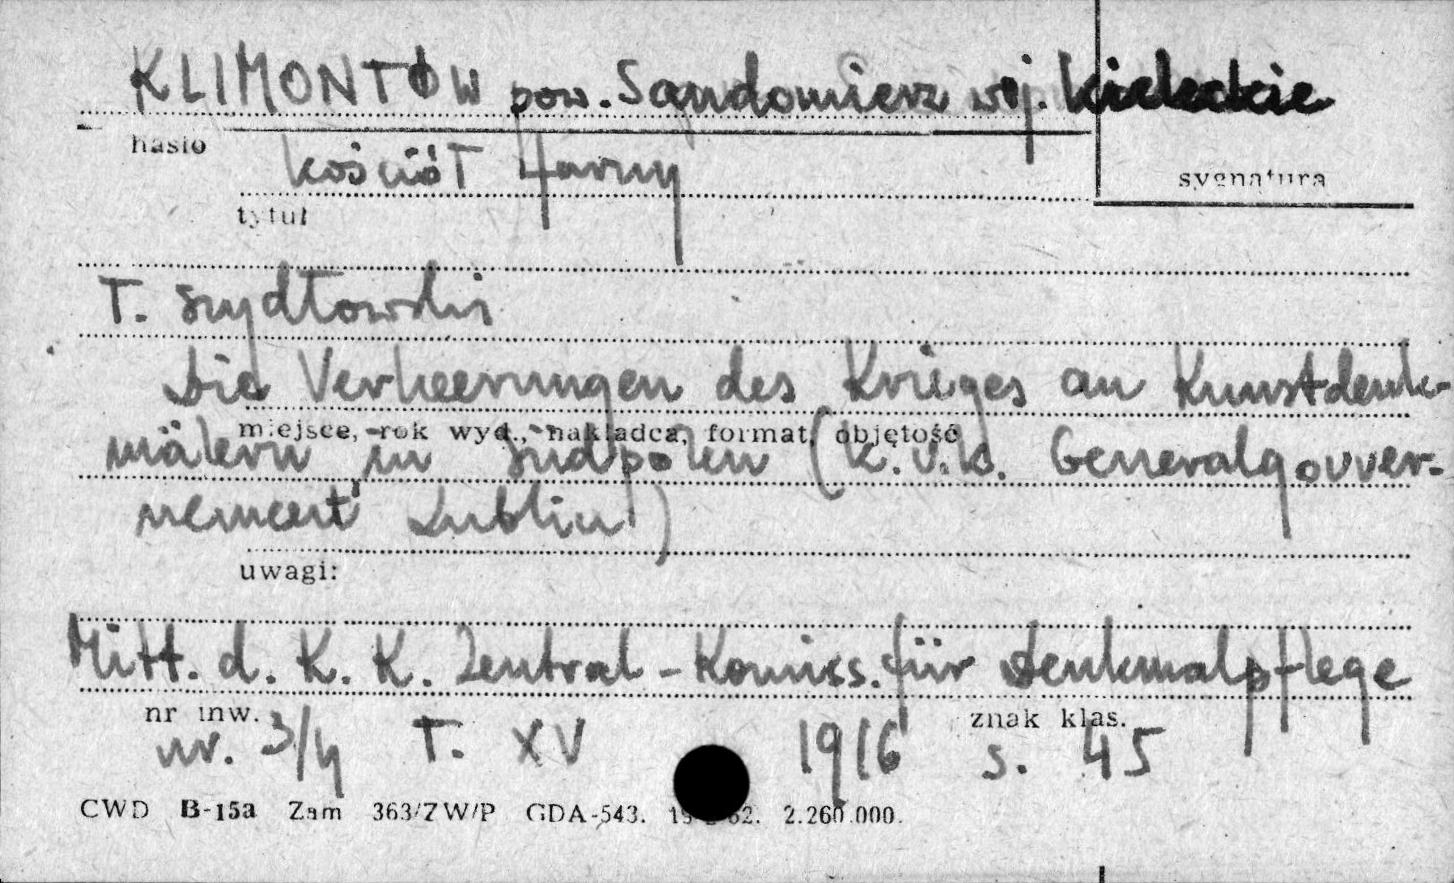 KLIMONTÓW pow. Sandomierz woj. Kieleckie
hasło
sygnatura
kościół farny
tytuł
T. Szydłowski
Die Verheerungen des Krieges an Kunstdenk-
miejsce, rok wyd., nakładca, format, objętość
mälern in Südpolen (K.u.k. Generalgouver-
nement Lublin)
uwagi:
Mitt. d. K. K. Zentral-Komiss. für Denkmalpflege
nr inw.
znak klas.
nr. 3/4 T. XV 1916 s. 45
CWD B-15a Zam 363/ZW/P GDA-543. 62. 2.260.000.